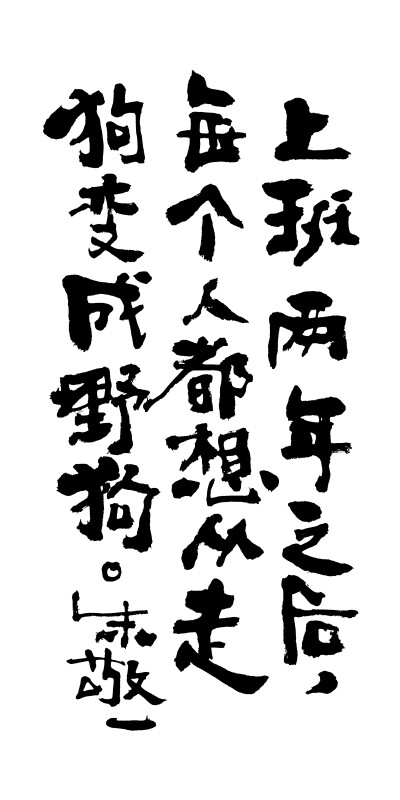 上班两年之后，
每个人都想从走
狗变成野狗。朱敬一